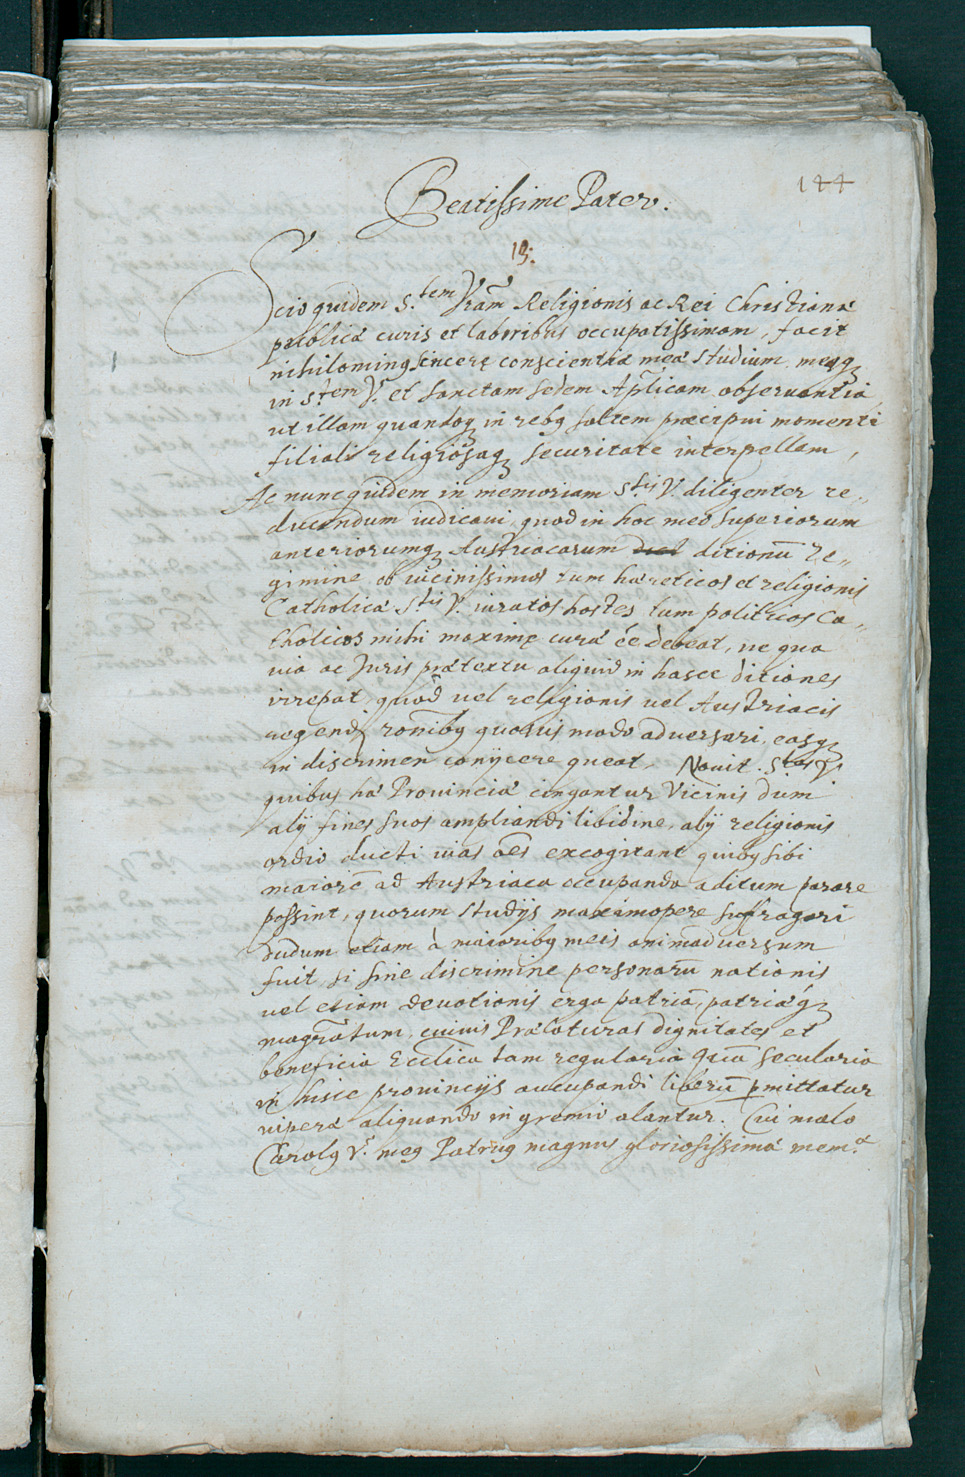 144
Beatissime Pater.
13.
Scio quidem S.tem Vrãm Religionis ac Rei Christianæ
publicæ curis et laboribus occupatissimam, facit
nihilominus sinceræ conscientiæ meæ studium, meaq
in S.tem V. et sanctam sedem Aplicam observantia
ut illam quandoq in rebus saltem præcipui momenti
filiali religiosaq securitate interpellem,
Ac nunc quidem in memoriam S.tis V. diligenter re„
ducendum iudicavi, quod in hoc meo superiorum
anteriorumq Austriacarum ditionũ re„
gimine ob vicinissimos tum hæreticos et religionis
Catholicæ S.tis V. iuratos hostes tum politicos Ca„
tholicos mihi maxime curæ ẽe debeat, ne qua
via ac Juris prætextu aliquid in hasce ditiones
irrepat, quod vel religionis vel Austriacis
regendi rõnibus quovis modo adversari, easq
in discrimen conijcere queat. Novit S.tas V.
quibus hæ Provinciæ cingantur Vicinis dum
alij fines suos ampliandi libidine, alij religionis
odio ducti vias oẽs excogitant quibus sibi
maiorẽ ad Austriaca occupanda aditum parare
possint, quorum studijs maximopere suffragari
dudum etiam à maioribus meis animadversum
fuit, si sine discrimine personarũ nationis
vel etiam devotionis erga patriã, patriæq
magrãtum, cuivis Prælaturas dignitates et
beneficia Ecclica tam regularia quã secularia
in hisce provincijs aucupandi liberũ pmittatur
viperæ aliquando in gremio alantur. Cui malo
Carolus V.s meus Patruus magnus gloriosissimæ mem.æ